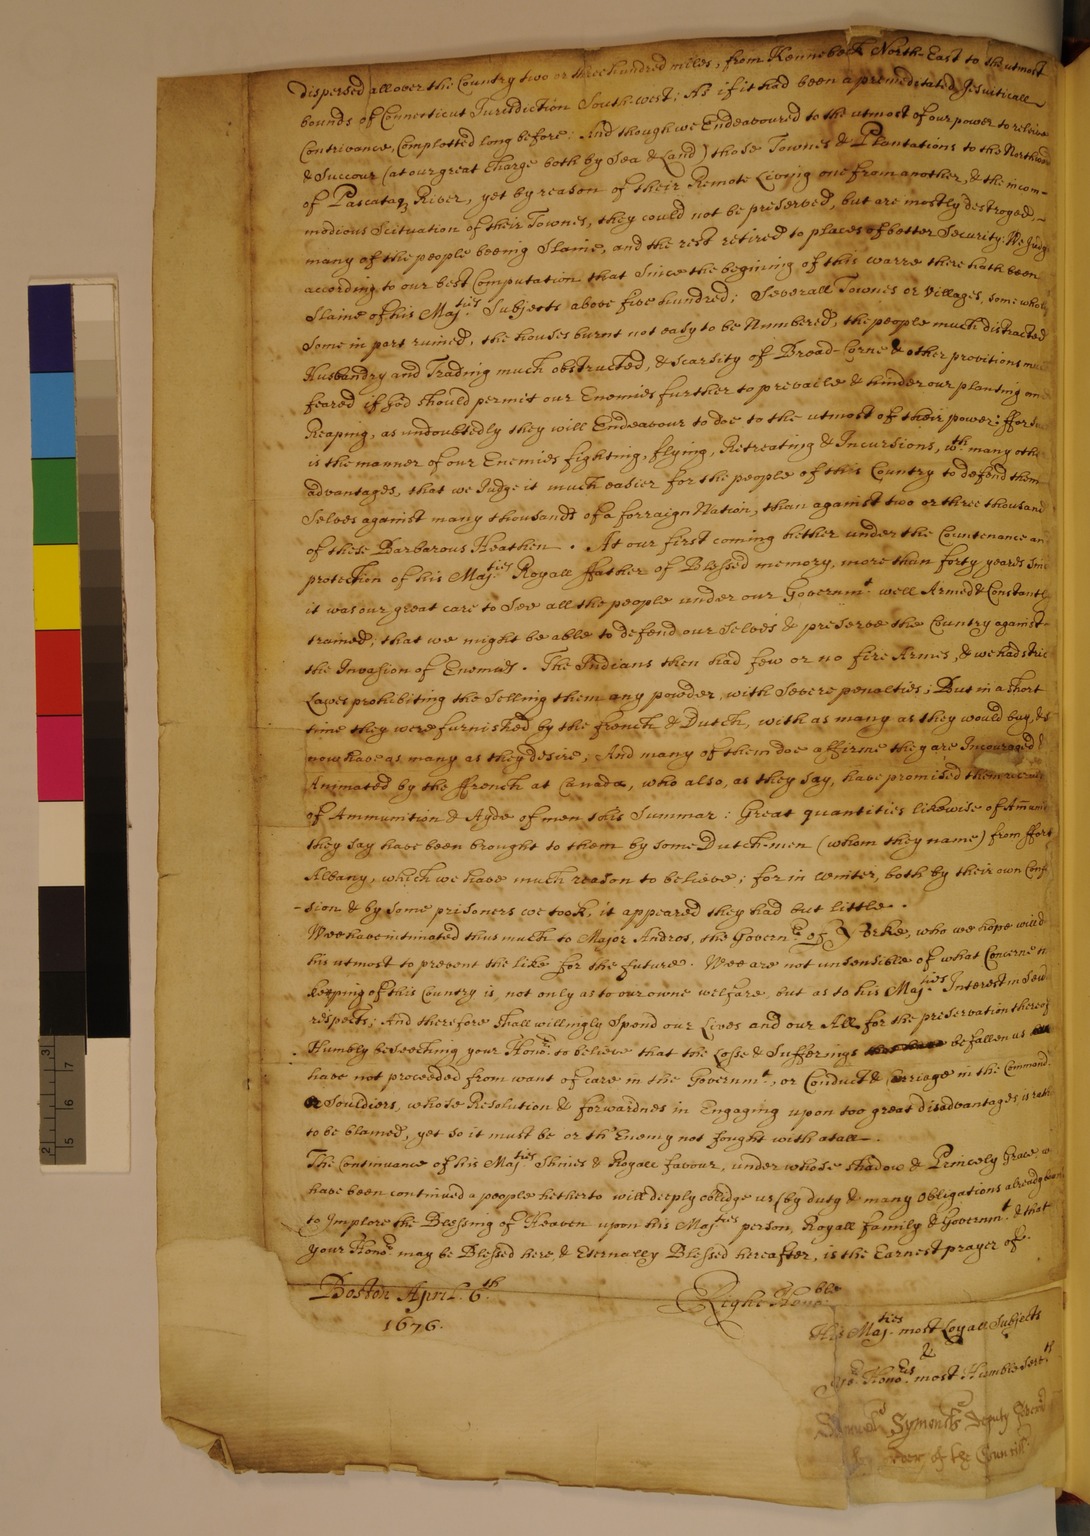 dispersed all over the Country two or three hundred miles, from Kennebeck North-East to the utmost
bounds of Connecticut Jurisdiction South-west; As if it had been a premeditated Jesuiticall
Contrivance, Complotted long before: And though we Endeavoured to the utmost of our power to relieve
& Succour (at our great Charge both by Sea & Land) those Townes & Plantations to the Northward
of Pascataq River, yet by reason of their Remote Living one from another, & the incom-
modious Scituation of their Townes, they could not be preserved, but are mostly destroyed,
many of the people beeing Slaine, and the rest retired to places of better Security: We Judge
according to our best Computation that Since the begining of this warre there hath been
Slaine of his Maj.ties Subjects above five hundred; Severall Townes or Villages, some wholy
Some in part ruined, the houses burnt not easy to be Numbered, the people much distracted
Husbandry and Trading much obstructed, & Scarsity of Bread-Corne & other provitions
feared if God should permit our Enemies further to prevaile & hinder our planting
Reaping, as undoubtedly they will Endeavour to doe to the utmost of their power: ffor
is the manner of our Enemies fighting, flying, Retreating & Incursions, wth many
advantages, that we Judge it much easier for the people of this Country to defend them
Selves against many thousands of a forraign Nation, than against two or three thousand
of these Barbarous Heathen. At our first coming hether under the Countenance an
protection of his Maj.ties Royall ffather of Blessed memory, more than forty yeares
it was our great care to See all the people under our Governmt. well Armed & Constantly
trained, that we might be able to defend our Selves & preserve the Country against
the Invasion of Enemies. The Indians then had few or no fire Armes, & we had
Lawes prohibiting the Selling them any powder, with Severe penalties; But in a short
time they were furnished by the french & Dutch, with as many as they would buy, &
now have as many as they desire, And many of them doe affirme they are Incouraged &
Animated by the ffrench at Canada, who also, as they say, have promised them
of Ammunition & Ayde of men this Summar: Great quantities likewise of
they say have been brought to them by some Dutch-men (whom they name) from ffort
Albany, which we have much reason to believe; for in winter, both by their own Conf
-sion & by some prisoners we took, it appeared they had but little.
Wee have intimated thus much to Major Andros, the Govern.r of N Yorke, who we hope will
his utmost to prevent the like for the future. Wee are not unsensible of what Concerne
keeping of this Country is, not only as to our owne welfare, but as to his Maj.ties Interest in
respects; And therefore shall willingly Spend our Lives and our All for the preservation thereof
Humbly beseeching your Hono.r to believe that the Losse & Sufferings befallen us
have not proceeded from want of care in the Governmt., or Conduct & Carriage in the Command
or Souldiers, whose Resolution & forwardnes in Engaging upon too great disadvantages is
to be blamed, yet so it must be or th' Enemy not fought with at all.
The Continuance of his Maj.ties Shines & Royall favour, under whose Shadow & Princely Grace
have been continued a people hetherto will deeply oblidge us (by duty & many Obligations already
to Implore the Blessing of Heaven upon his Maj.ties person, Royall family & Governmt. & that
your Hono.r may be Blessed here & Eternally Blessed hereafter, is the Earnest prayer of
Boston April. 6.th
1676.
Right Hono.ble
His Maj.ties most Loyall Subjects
&
yo.r Hono.rs most Humble Servts
Samuel Symonds Deputy Govern.r
order of the Councill